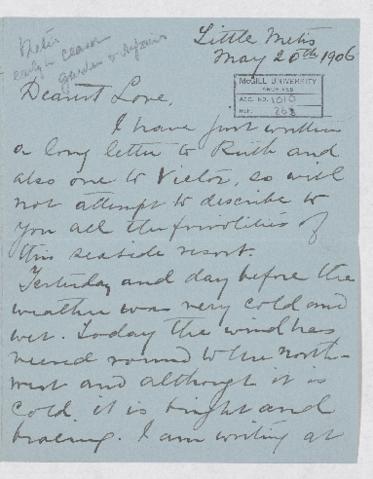 Metis
early in season
Garden & Repairs
Little Metis
May 20th 1906
McGILL UNIVERSITY
ARCHIVES
ACC. NO. 1010
REF. 263
Dearest Love,
I have just written
a long letter to Ruth and
also one to Victor, so will
not attempt to describe to
you all the frivolities of
this seaside resort.
Yesterday and day before the
weather was very cold and
wet. Today the wind has
veered round to the north-
west and although it is
cold it is bright and
bracing. I am writing at